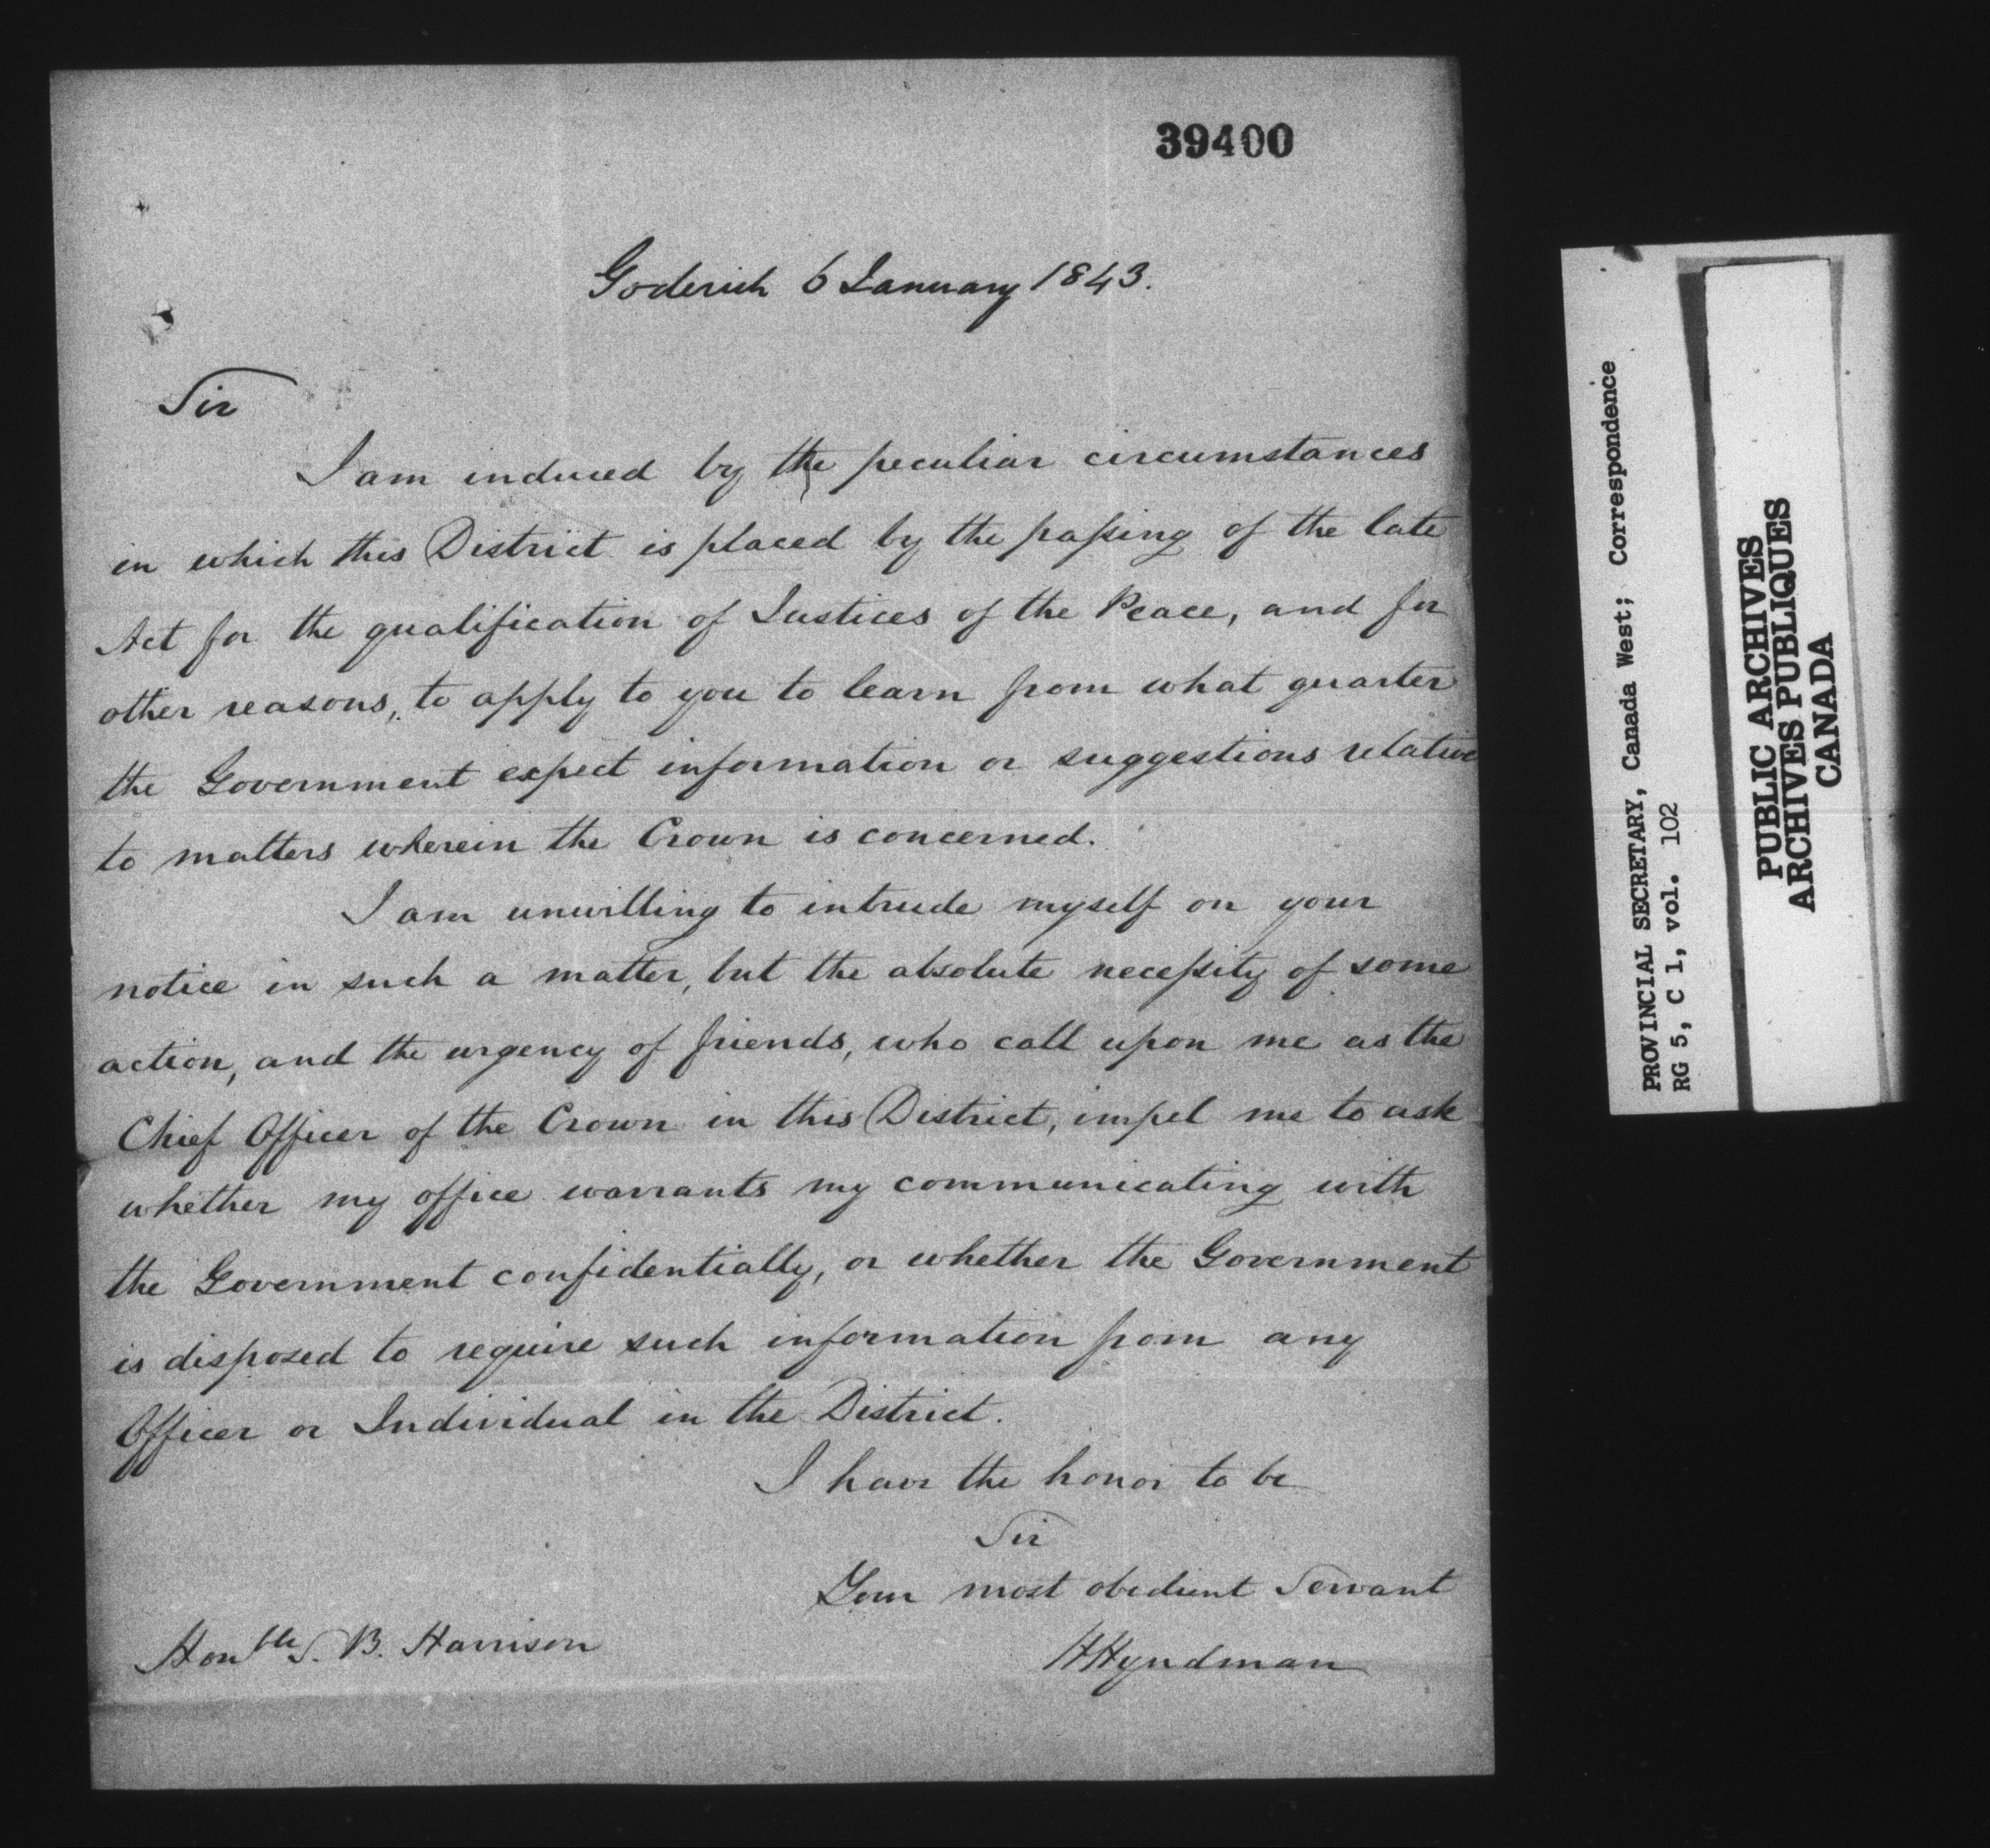 39400
Goderich 6 January 1843.
Sir
I am induced by the peculiar circumstances
in which this District is placed by the passing of the late
Act for the qualification of Justices of the Peace, and for
other reasons, to apply to you to learn from what quarter
the Government expect information or suggestions relative
to matters wherein the Crown is concerned.
I am unwilling to intrude myself on your
notice in such a matter, but the absolute necessity of some
action, and the urgency of friends, who call upon me as the
Chief Officer of the Crown in this District, impel me to ask
whether my office warrants my communicating with
the Government confidentially, or whether the Government
is disposed to require such information from any
Officer or Individual in the District.
I have the honor to be
Sir
Your most obedient Servant
HHyndman
Honble S. B. Harrison
PROVINCIAL SECRETARY, Canada West; Correspondence
RG 5, C 1, vol. 102
PUBLIC ARCHIVES
ARCHIVES PUBLIQUES
CANADA